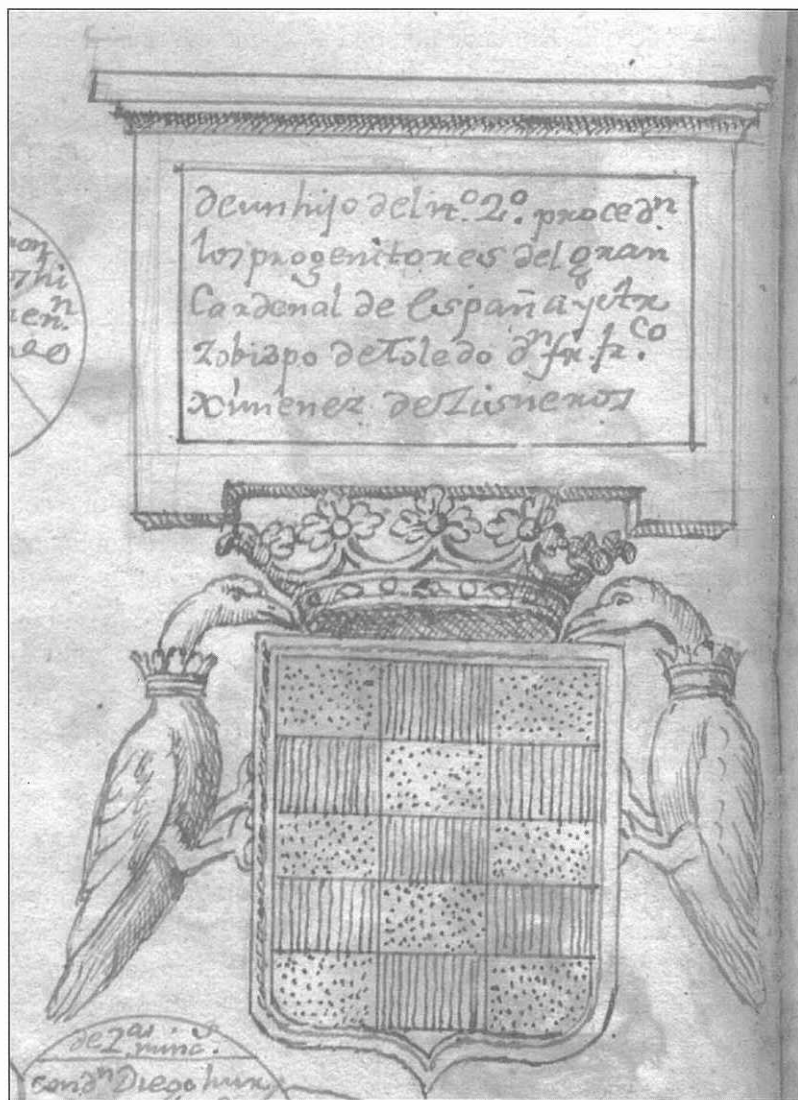 de un hijo del nº. 2º. procedn
los progenitores del gran
Cardenal de España y Ar
zobispo de Toledo dn fr. frco.
Ximenez de Zisneros
de 2as
con dn Diego hur